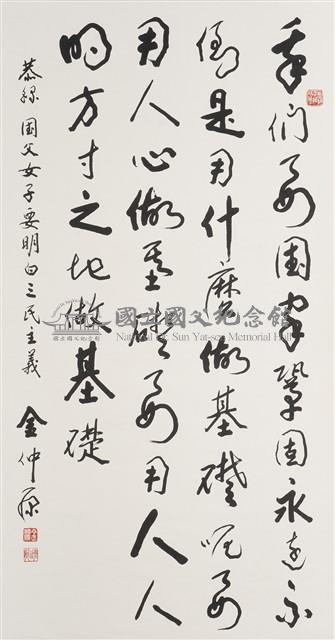 我們要國家鞏固永遠不
倒是用什麼做基礎呢要
用人心做基礎要用人人
的方寸之地做基礎
恭錄國父女子要明白三民主義
金仲原
國立國父紀念館
National Dr. Sun Yat-sen Memorial Hall